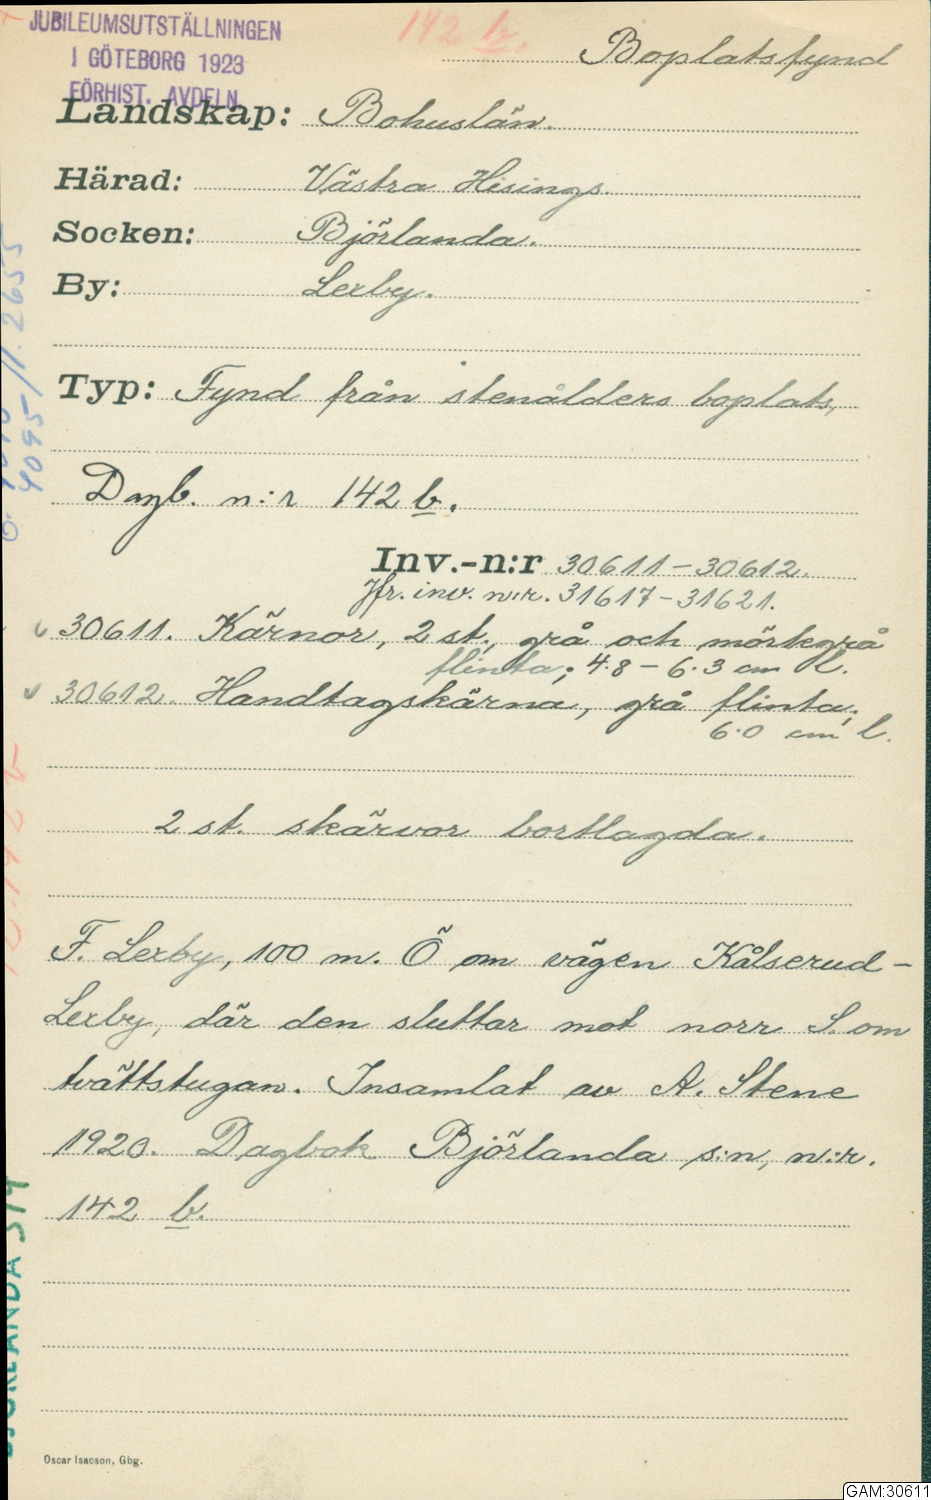 JUBILEUMSUTSTÄLLNINGEN
I GÖTEBORG 1923
FÖRHIST. AVDELN.
142 b.
Boplatsfynd
Landskap: Bohuslän.
Härad: Västra Hisings.
Socken: Björlanda.
By: Lexby.
Typ: Fynd från stenålders boplats,
Dagb. n:r 142 b.
Inv.-n:r 30611-30612.
Jfr. inv. n:r. 31617-31621.
30611. Kärnor, 2 st., grå och mörkgrå
flinta; 4.8 - 6.3 cm l.
30612. Handtagskärna, grå flinta;
6.0 cm l.
2 st. skärvor bortlagda.
F. Lexby, 100 m. Ö om vägen Kålserud-
Lexby, där den sluttar mot norr S. om
tvättstugan. Insamlat av A. Stene
1920. Dagbok Björlanda s:n, n:r.
142 b.
4095/1.2655
BJÖRLANDA 314
Oscar Isacson, Gbg.
GAM:30611